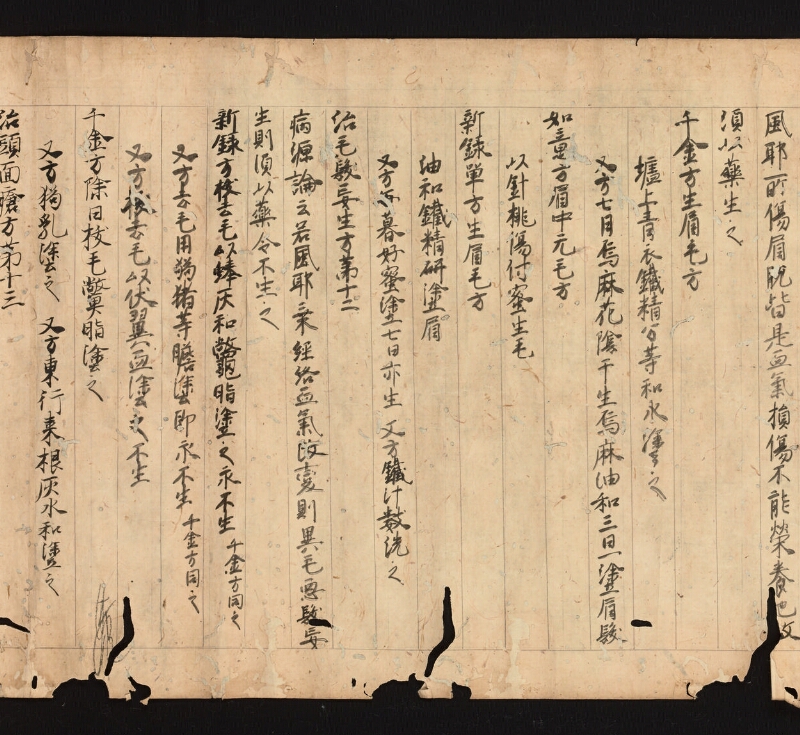 風耶所傷眉脱皆是血氣損傷不能榮養也故
須以藥生之
千金方生眉毛方
壚上青衣鐵精分等和水塗之
又方七月烏麻花陰干生烏麻油和三日一塗眉髮
如意方眉中无毛方
以針挑傷付蜜生毛
新録單方生眉毛方
油和鐵精研塗眉
又方 暮好蜜塗七日亦生 又方鐵汁數洗之
治毛髮妄生方第十二
病源論云若風耶乘經絡血氣改變則異毛惡髮妄
生則須以藥令不生之
新録方拔去毛以蜯灰和鼈脂塗之永不生 千金方同之
又方去毛用狗猪等膽塗即永不生 千金方同之
又方拔去毛以伏翼血塗之不生
千金方除日拔毛鼈脂塗之
又方狗乳塗之 又方東行棗根灰水和塗之
治頭面瘡方第十三